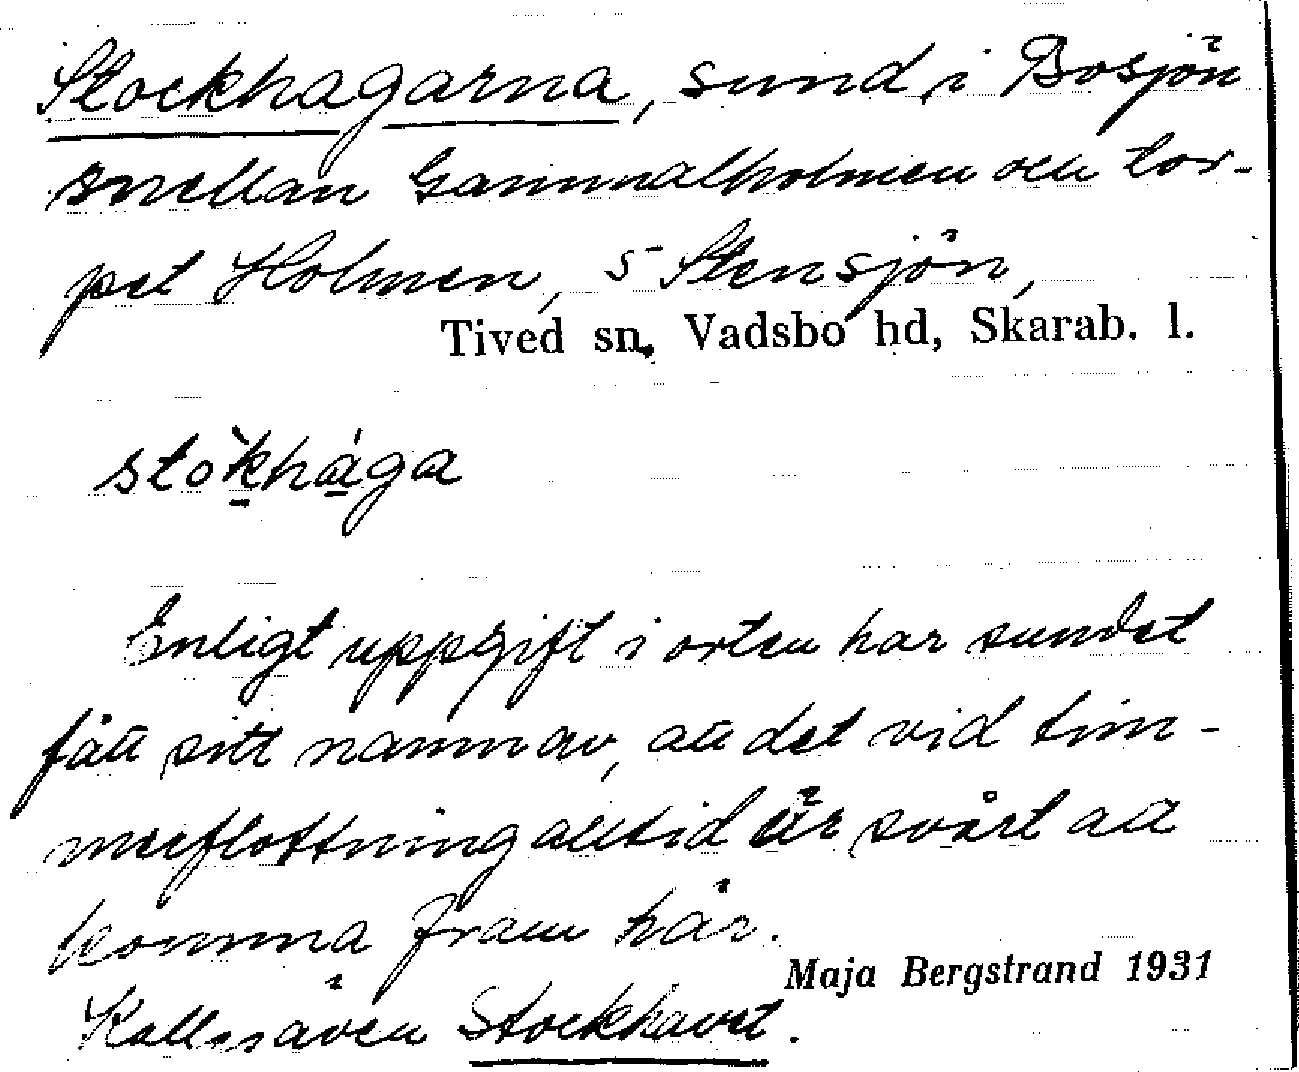 Stockhagarna, sund i Bosjön
mellan Gammalholmen och tor-
pet Holmen, S Stensjön,
Tived sn, Vadsbo hd, Skarab. l.
stòk̠há̠ga
Enligt uppgift i orten har sundet
fått sitt namn av, att det vid tim-
merflottning alltid är svårt att
komma fram här.
Maja Bergstrand 1931
Kallas även Stockhavet.